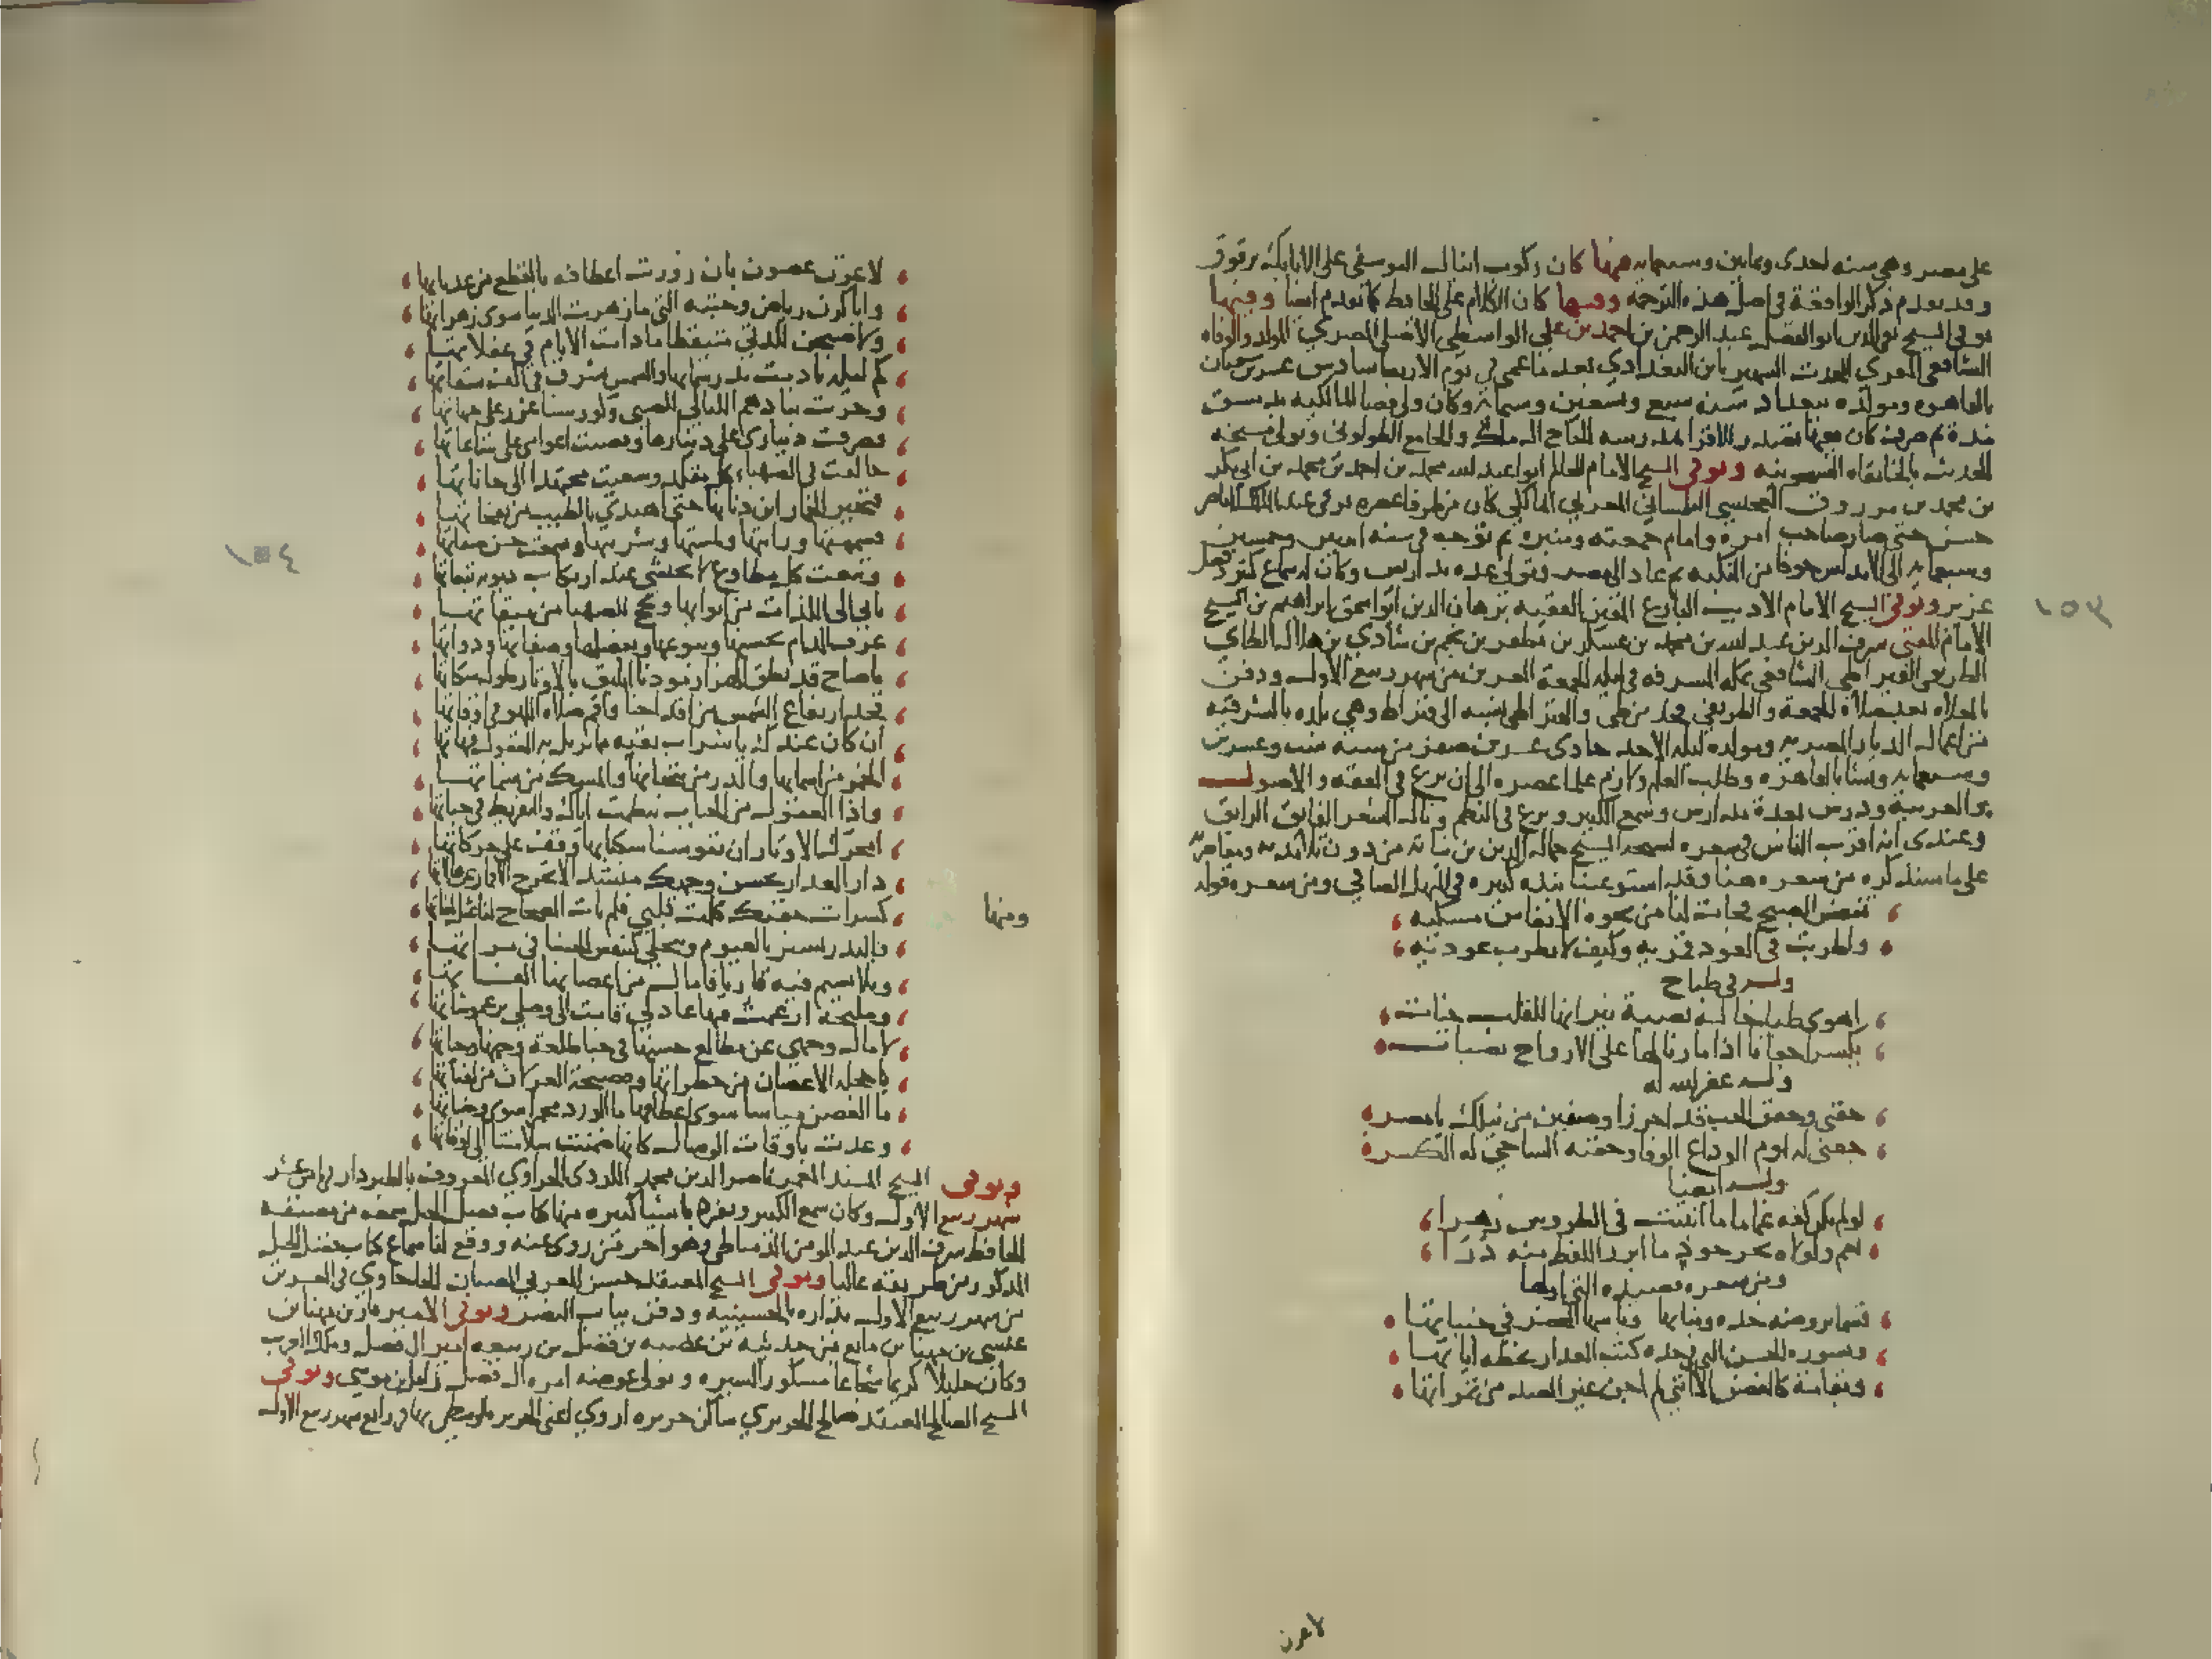 على مصر وهي سنه احدى وثمانين وسبعمايه فيها كان ركوب اينال اليوسفي على الاتابك برقوق
وقد تقدم ذكر الواقعة في اصل هذه الترجمه وفيها كان الكلام على الحايط كما تقدم ايضا وفيها
توفي الشيخ تقي الدين ابو الفضل عبد الرحمن بن احمد بن علي الواسطي الاصل المصري المولد والوفاه
الشافعي المقري المحدث الشهير بابن البغدادي بعد ما عمي في يوم الاربعا سادس عشر شعبان
بالقاهره ومولده ببغداد سنه سبع وتسعين وستمايه وكان ولي قضا المالكيه
مدة ثم صرف كان بها تصدر للاقرا بمدرسه الحاج ال ملك والجامع الطولوني وتولى مشيخه
الحديث بالخانقاه الشيخونيه وتوفي الشيخ الامام العالم ابو عبد الله محمد بن احمد بن محمد بن ابي بكر
بن محمد بن مرزوق العجيسي التلمساني المغربي المالكي كان من ظرفا عصره ترقى عند الملك الناصر
حسن حتى صار صاحب امره وامام جمعته ومنبره ثم توجه في سنه اربع وخمسين
وسبعمايه الى الاندلس خوفا من النكبه ثم عاد الى مصر وتولى عده مدارس وكان له سماع كثير وفضل
غزير وتوفي الشيخ الامام الاديب البارع المفنن الفقيه برهان الدين ابو اسحق ابراهيم بن الشيخ
الامام المفتي شرف الدين عبد الله بن محمد بن عسكر بن مظفر بن نجم بن شادي بن هلال الطاي
الطريفي القيراطي الشافعي بمكه المشرفه في ليله الجمعة العشرين من شهر ربيع الاول ودفن
بالمعلاه بعد صلاة الجمعة والطريفي فخذ من طي والقيراطي نسبه الى قيراط وهي بلده بالشرقيه
من اعمال الديار المصريه ومولده ليله الاحد حادي عشرين صفر من سنه ست وعشرين
وسبعمايه ونشا بالقاهره وطلب العلم ولازم علما عصره الى ان برع في الفقه والاصول
والعربيه ودرس بعدة مدارس وسمع الكثير وبرع في النظم وقال الشعر الفايق الرايق
وعندي انه اقرب الناس في شعره لشيخه الشيخ جمال الدين بن نباته من دون تلامذته ومعاصريه
على ما سنذكره من شعره هنا وقد استوعبنا نبذه كبيره في المنهل الصافي ومن شعره قوله
تنفس الصبح فجاءت لنا من نحوه الانفاس مسكيه
واطربت في العود قمريه وكيف لا تطرب عوديه
وله في طباخ
اهوى طباخا له نصبة نيرانها للقلب جنات
يكسر اجفانا اذا ما رنا لها على الارواح نصبات
وله عفر الله له
جفني وجفن الحب قد احرزا وصفين من نيلك يا مصر
جفني له يوم الوداع الوفا وجفنه الساجي له الكسر
وله ايضا
لو لم يكن كفه غماما ما انبتت في الطروس زهرا
نعم ولولاه بحر جود ما ابرز اللفظ منه درا
ومن شعره قصيده التي اولها
قسما بروضة خده ونباتها وباسها المخضر في جنباتها
وبسورة الحسن التي في خده كتب العذار بخطه اياتها
وبقامة كالغصن الا انني لم اجن غير الصد من ثمراتها
لاعزن
لاعزن غصون بان زورت اعطافه بالقطع من عذباتها
واباكرن رياض وجنته التي ما زهرت الدنيا سوى زهراتها
ولاصبحن للذتي متيقظا ما دامت الايام في غفلاتها
كم ليله نادمت بدر سمايها والشمس تشرق في اكف سقاتها
وجرت بنا دهم الليالي للصبى وكؤوسنا غرر على جبهاتها
فصرفت ديناري على دينارها وقضيت اعوامي على ساعاتها
خالفت في الصهباء كل مقلد وسعيت مجتهدا الى حاناتها
فتحير الخمار اين دنانها حتى اهتدى بالطيب من نفحاتها
فشممتها ورايتها ولمستها وشربتها وسمعت حسن صفاتها
وتبعت كل مطاوع لا يختشي عند ارتكاب ذنوبه تبعاتها
ياتي الى اللذات من ابوابها ويحج للصهبا من ميقاتها
عرف المدام بحسنها وبنوعها وبفضلها وصفاتها وذواتها
يا صاح قد نطق الهزار مؤذنا ايليق بالاوتار طول سكاتها
فخذ ارتفاع الشمس من اقداحنا واقم صلاة اللهو في اوقاتها
ان كان عندك يا شراب بقيه مما يزيل به العقول فهاتها
الخمر من اسمايها والدر من تيجانها والمسك من نسماتها
واذا العقود من الحباب تنظمت اياك والتفريط في حباتها
امحرك الاوتار ان نفوسنا سكناتها وقف على حركاتها
دار العذار بحسن وجهك منشدا لا تخرج الاقمار عن هالاتها
كسرات جفنك كلمت قلبي فلم يات الصحاح لنا بمثل لغاتها
ومنها
فالبدر يستر بالغيوم وينجلي كتنفس الحسنا في مراتها
ومليحة ارغمت فيها عاذلي قامت الى وصلي برغم وشاتها
لا مال وجهي عن مطالع حسنها في حيا طلعة وجهها وحياتها
يا خجلة الاغصان من خطراتها وفضيحة الغزلان من لفتاتها
ما الغصن مياسا سوى اعطافها ما الورد محمرا سوى وجناتها
وعدت باوقات الوصال كانها ضمنت سلامتنا الى اوقاتها
وتوفي الشيخ المسند المعمر ناصر الدين محمد الكردي الحراوي المعروف بالطبردار في ثامن عشر
شهر ربيع الاول وكان سمع الكثير وتفرد باشيا كثيره منها كتاب فضل الخيل سمعه من مصنفه
الحافظ شرف الدين عبد المومن الدمياطي وهو اخر من روى عنه ووقع لنا سماع كتاب فضل الخيل
المذكور من طريقه عاليا وتوفي الشيخ المعتقد حسن المغربي الصبان الحاحاوي في العشرين
من شهر ربيع الاول بداره بالحسينيه ودفن بباب النصر وتوفي الامير قارا بن مهنا بن
عيسى بن مهنا بن مانع بن حديثه بن غضيه بن فضل بن ربيعه امير ال فضل وملك العرب
وكان جليلا كريما شجاعا مشكور السيره وتولى عوضه امره ال فضل زامل بن موسى وتوفي
الشيخ الصالح المعتقد صالح الجزيري ساكن جزيره اروى اعني الجزيره الوسطى بها في رابع شهر ربيع الاول